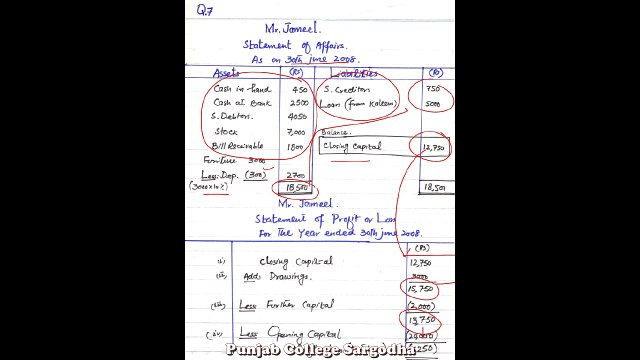 Q.7
Mr. Jameel.
Statement of Affairs.
As on 30th June 2008.
Assets (Rs) Liabilities (Rs)
Cash in hand 450 S. Creditors 750
Cash at Bank 2500 Loan (from Kaleem) 5000
S. Debtors 4050
Stock 7,000 Balance
Bill Receivable 1800 Closing Capital 12,750
Furniture 3000
Less: Dep. (300) 2700
(3000x10%) 18,500 18,500
Mr. Jameel
Statement of Profit or Loss
For The Year ended 30th June 2008.
(Rs)
(i) Closing Capital 12,750
(ii) Add: Drawings. 3000
15,750
(iii) Less: Further Capital (2,000)
13,750
(iv) Less: Opening Capital
Punjab College Sargodha